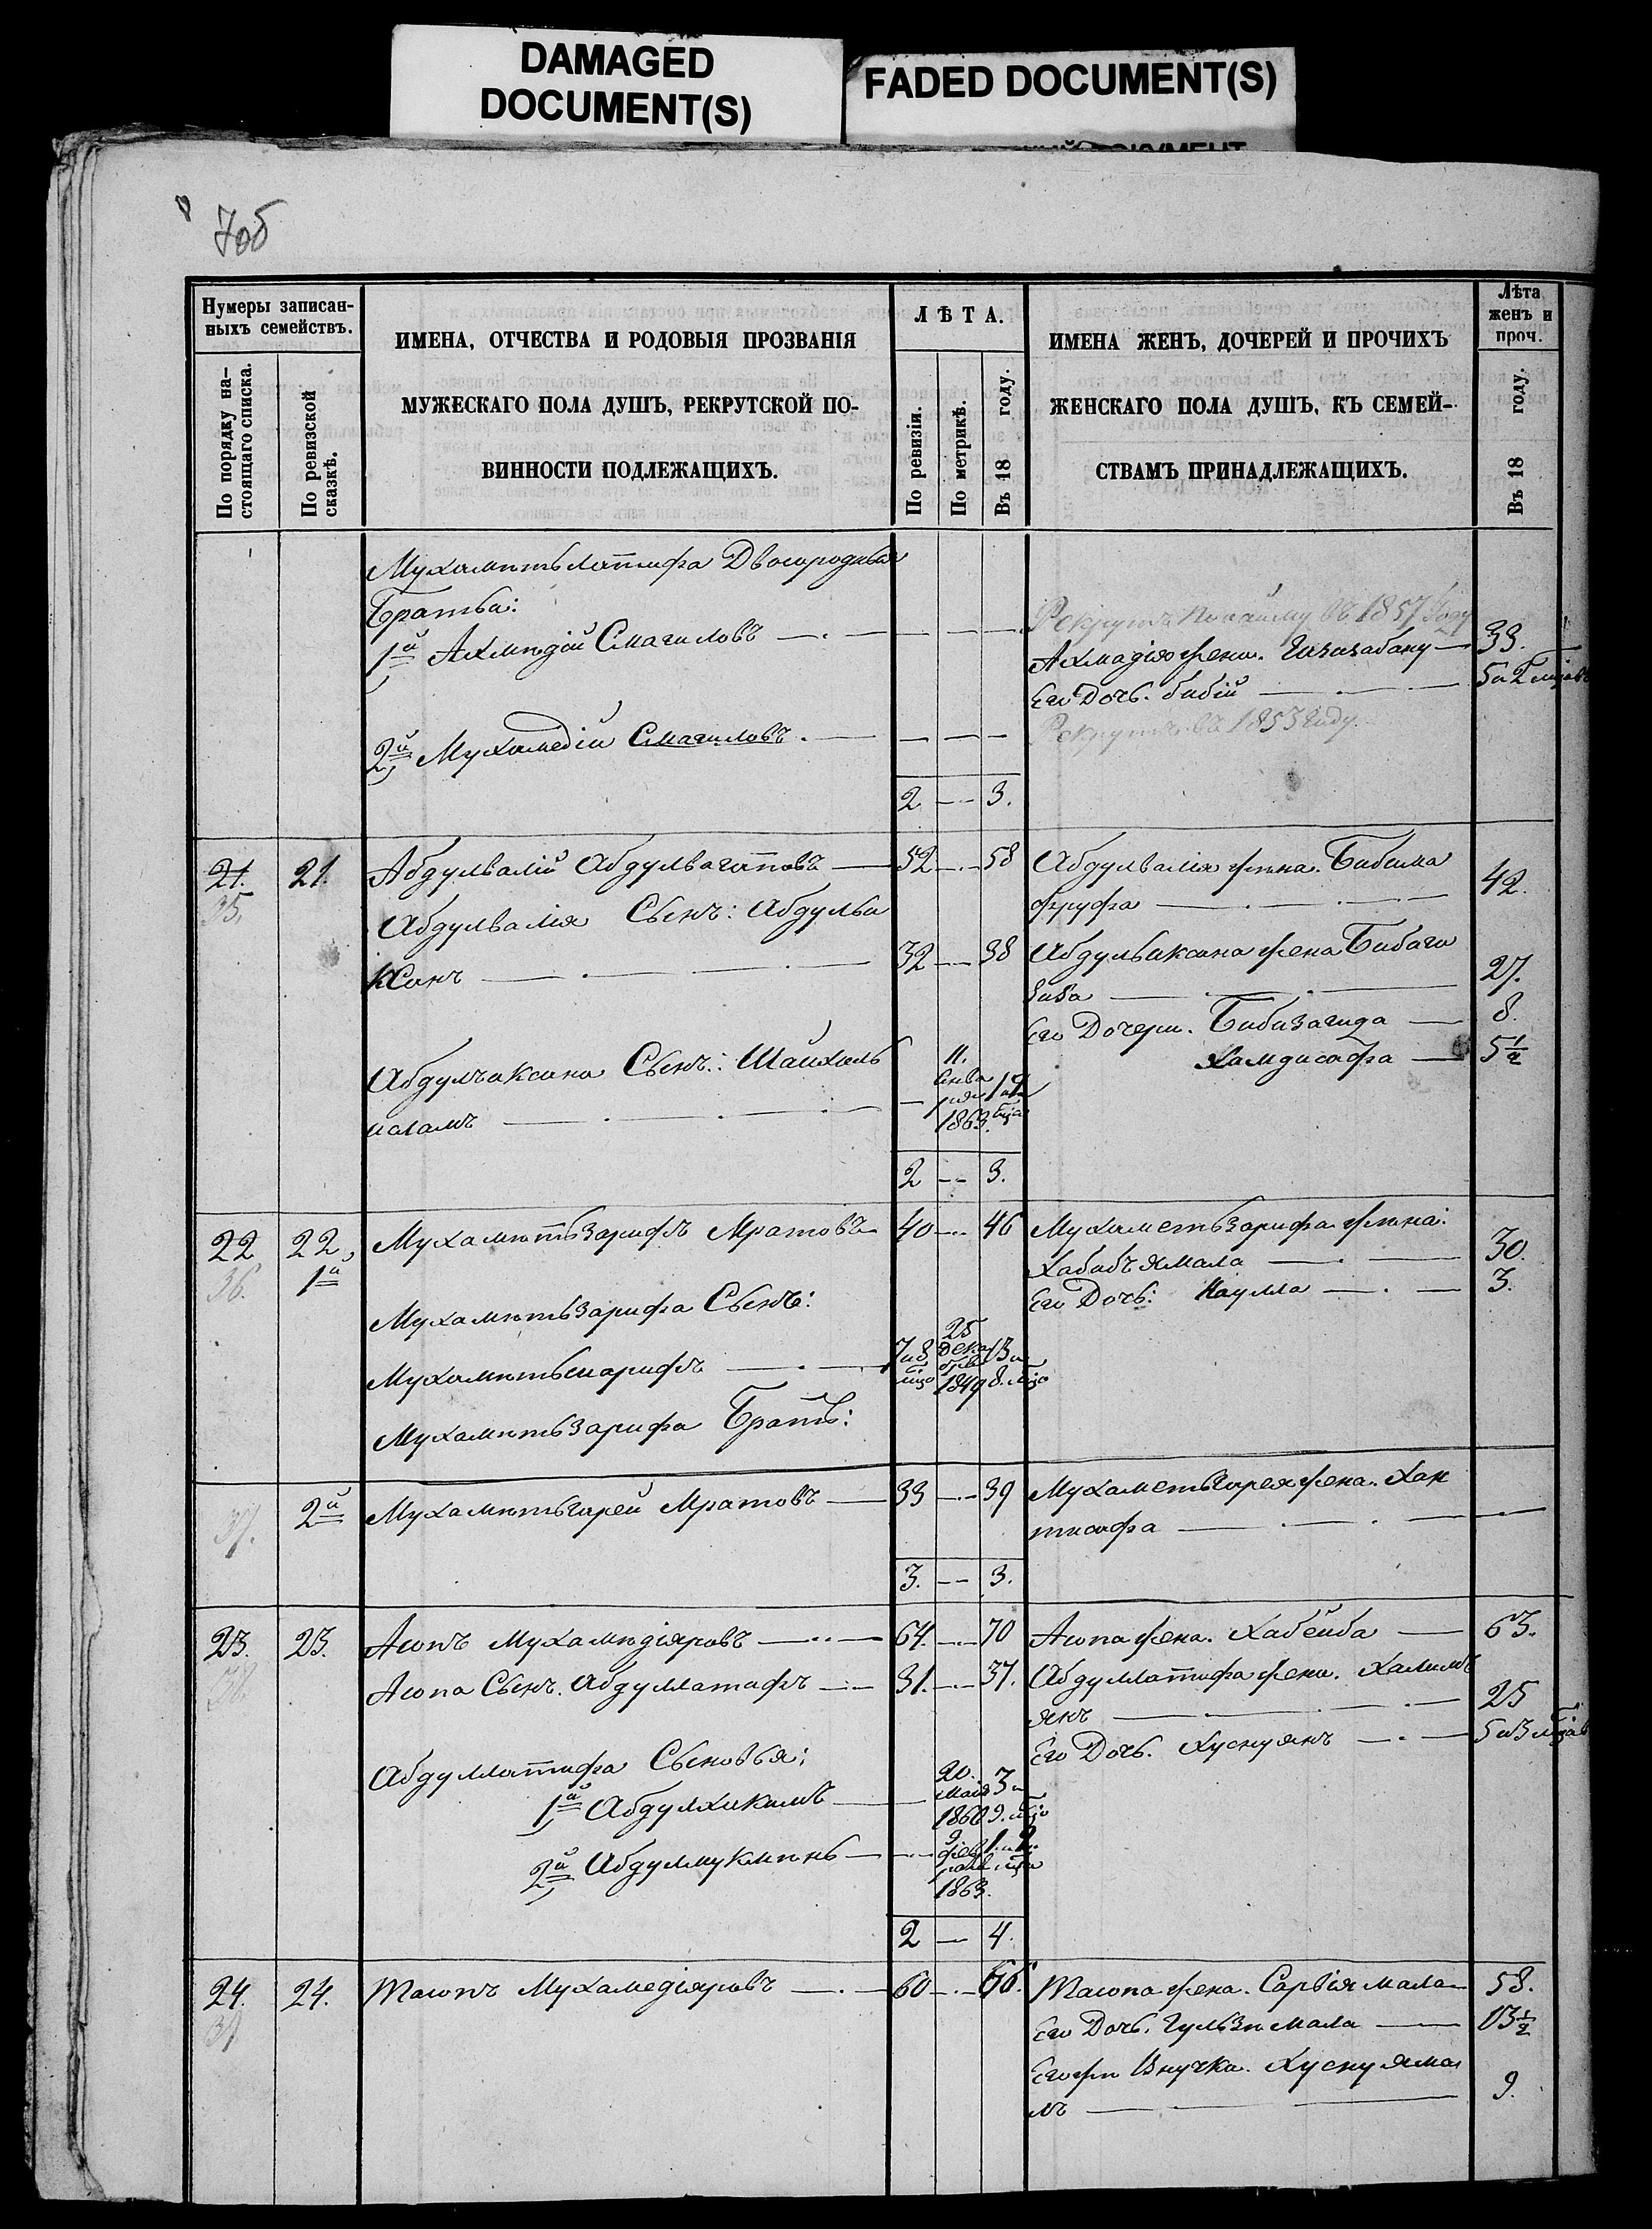 DAMAGED
DOCUMENT(S)
FADED DOCUMENT(S)
7об
Нумеры записан-
ныхъ семействъ.
По порядку на-
стоящаго списка.
По ревизской
сказкѣ.
ИМЕНА, ОТЧЕСТВА И РОДОВЫЯ ПРОЗВАНІЯ
МУЖЕСКАГО ПОЛА ДУШЪ, РЕКРУТСКОЙ ПО-
ВИННОСТИ ПОДЛЕЖАЩИХЪ.
ЛѢТА.
По ревизіи.
По метрикѣ.
Въ 18 году.
ИМЕНА ЖЕНЪ, ДОЧЕРЕЙ И ПРОЧИХЪ
ЖЕНСКАГО ПОЛА ДУШЪ, КЪ СЕМЕЙ-
СТВАМЪ ПРИНАДЛЕЖАЩИХЪ.
Лѣта
женъ и
проч.
Въ 18 году.
Мухаметьлатифа Двоюродныя
Братья:
Рекрутъ по найму въ 1857 году
1й Ахмядій Смагиловъ
Ахмадія жена. 33.
Его Дочь. Бибій 5 и 2 мѣсяв
2й Мухамедій Смагиловъ.
Рекрутъ въ 1853 году.
2 — 3.
21. 21. Абдулвалій Абдулвагаповъ — 52 — 58 Абдулвалія жена. Бибима
35.
фруфа 42.
Абдулвалія Сынъ: Абдулва
ксанъ 32 — 38 Абдулваксана жена Бибаги
биба 27.
Его Дочери. Бибизагида — 8.
Хамдисафа — 5½
Абдулваксана Сынъ: Шайхаль
исламъ
11.
1863.
2 — 3.
22 22, Мухаметьзарифъ Мратовъ 40 — 46 Мухаметьзарифа жена:
36. 1й
Хабибъямала 30.
Его Дочь: Наулла 3.
Мухаметьзарифа Сынъ:
Мухаметьшарифъ 7 и 8 25 дека 1849 13 и 8. мцо
Мухаметьзарифа Братъ:
37. 2й Мухаметьгарей Мратовъ — 33 — 39 Мухаметьгарея жена. Хан
тисафа
3. — 3.
23. 23. Аюпъ Мухамедіяровъ — 64. — 70 Аюпа жена. Хабейба — 63.
38.
Аюпа Сынъ. Абдуллатифъ — 31. — 37. Абдуллатифа жена. Халимъ
янъ 25
Его Дочь. Хуснуянъ — 5 и 3 мѣсяв
Абдуллатифа Сыновья:
1й Абдулхакимъ 20. Маія 1860 3 и 9. мцо
2й Абдулмукминъ 9 февраля 1863.
2 — 4.
24. 24. Таюпъ Мухамедіяровъ — 60 — 66. Таюпа жена. Сарвіямала 58.
39
Его Дочь. Гульзямала — 13½
Егоже Внучка. Хуснуяма
лъ 9.